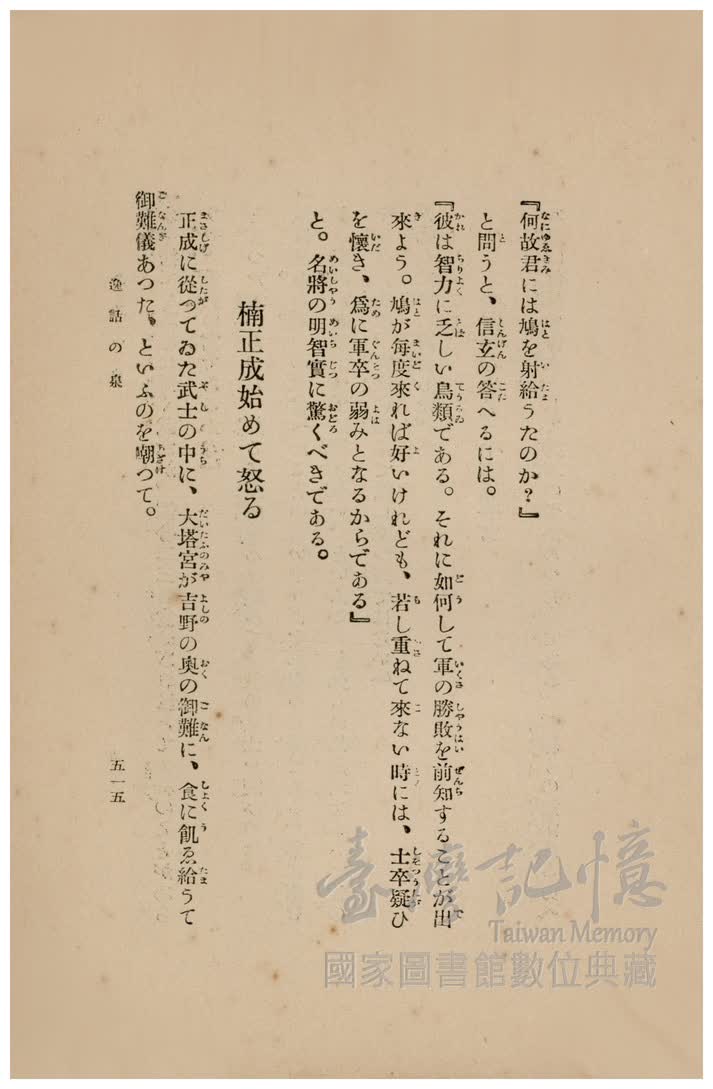 『何故君には鳩を射給うたのか？』
と問うと、信玄の答へるには。
『彼は智力に乏しい鳥類である。それに如何して軍の勝敗を前知することが出
來よう。鳩が每度來れば好いけれども、若し重ねて來ない時には、士卒疑ひ
を懷き、爲に軍卒の弱みとなるからである』
と。名將の明智實に驚くべきである。
楠正成始めて怒る
正成に從つてゐた武士の中に、大塔宮が吉野の奥の御難に、食に飢ゑ給うて
御難儀あつた、といふのを嘲つて。
逸話の泉
五一五
臺灣記憶
Taiwan Memory
國家圖書館數位典藏